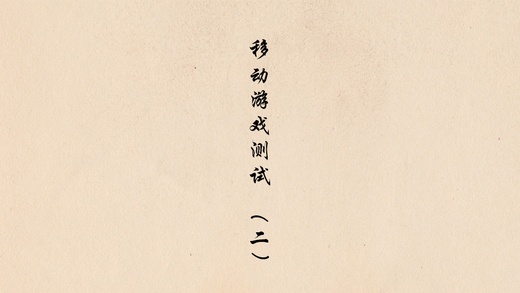 移动游戏测试（二）